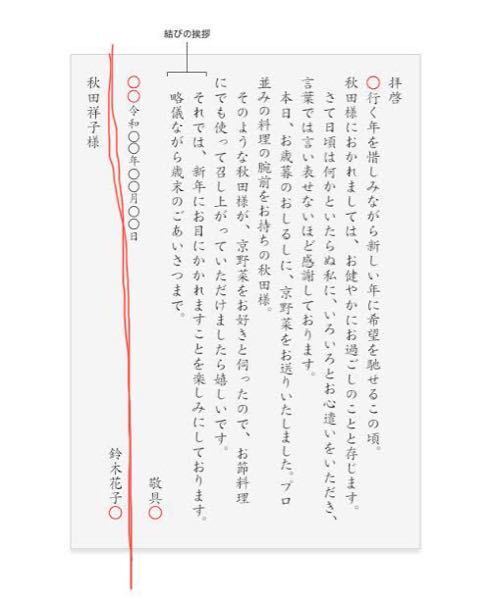 結びの挨拶
拝啓
〇行く年を惜しみながら新しい年に希望を馳せるこの頃。
秋田様におかれましては、お健やかにお過ごしのことと存じます。
さて日頃は何かといたらぬ私に、いろいろとお心遣いをいただき、
言葉では言い表せないほど感謝しております。
本日、お歳暮のおしるしに、京野菜をお送りいたしました。プロ
並みの料理の腕前をお持ちの秋田様。
そのような秋田様が、京野菜をお好きと伺ったので、お節料理
にでも使って召し上がっていただけましたら嬉しいです。
それでは、新年にお目にかかれますことを楽しみにしております。
略儀ながら歳末のごあいさつまで。
敬具〇
〇〇令和〇〇年〇〇月〇〇日
鈴木花子〇
秋田祥子様